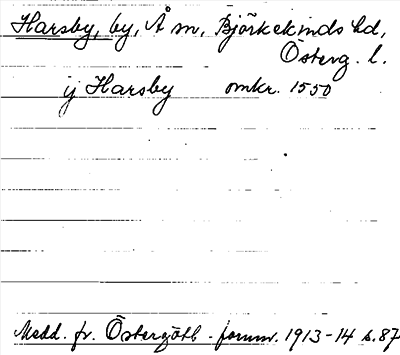 Harsby, by, Å sn, Björkekinds hd,
Österg. l.
ij Harsby omkr. 1550
Medd. fr. Östergötl. fornm. 1913-14 s. 87